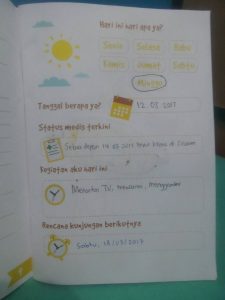 Hari ini hari apa ya?
Senin Selasa Rabu
Kamis Jumat Sabtu
Minggu
Tanggal berapa ya?
12 03 2017
Status medis terkini
14 03 2017
Kegiatan aku hari ini
Menonton TV, mewarnai, menggambar
Rencana kunjungan berikutnya
Sabtu, 18/03/2017